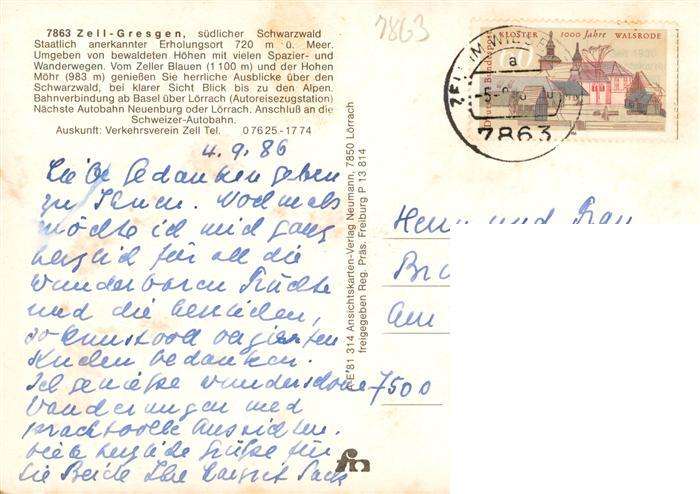 7863 Zell-Gresgen, südlicher Schwarzwald
Staatlich anerkannter Erholungsort 720 m ü. Meer.
Umgeben von bewaldeten Höhen mit vielen Spazier- und
Wanderwegen. Vom Zeller Blauen (1 100 m) und der Hohen
Möhr (983 m) genießen Sie herrliche Ausblicke über den
Schwarzwald, bei klarer Sicht Blick bis zu den Alpen.
Bahnverbindung ab Basel über Lörrach (Autoreisezugstation)
Nächste Autobahn Neuenburg oder Lörrach. Anschluß an die
Schweizer-Autobahn.
Auskunft: Verkehrsverein Zell Tel. 0 76 25 - 17 74
4.9.86
Liebe Gedanken gehen
zu Ihnen. Nochmals
möchte ich mich ganz
herzlich für all die
wunderbaren Früchte
und die
so kunstvoll
Kuchen bedanken.
Ich genieße wunderschöne
Wanderungen und
prachtvolle Aussichten.
Viele herzliche Grüße für
Sie Beide Ihre Margrit
E 81 314 Ansichtskarten-Verlag Neumann, 7850 Lörrach
freigegeben Reg. Präs. Freiburg P 13 814
7863
KLOSTER 1000 Jahre WALSRODE
ZELL IM WIES
a
7863
Herrn und Frau
Am
7500